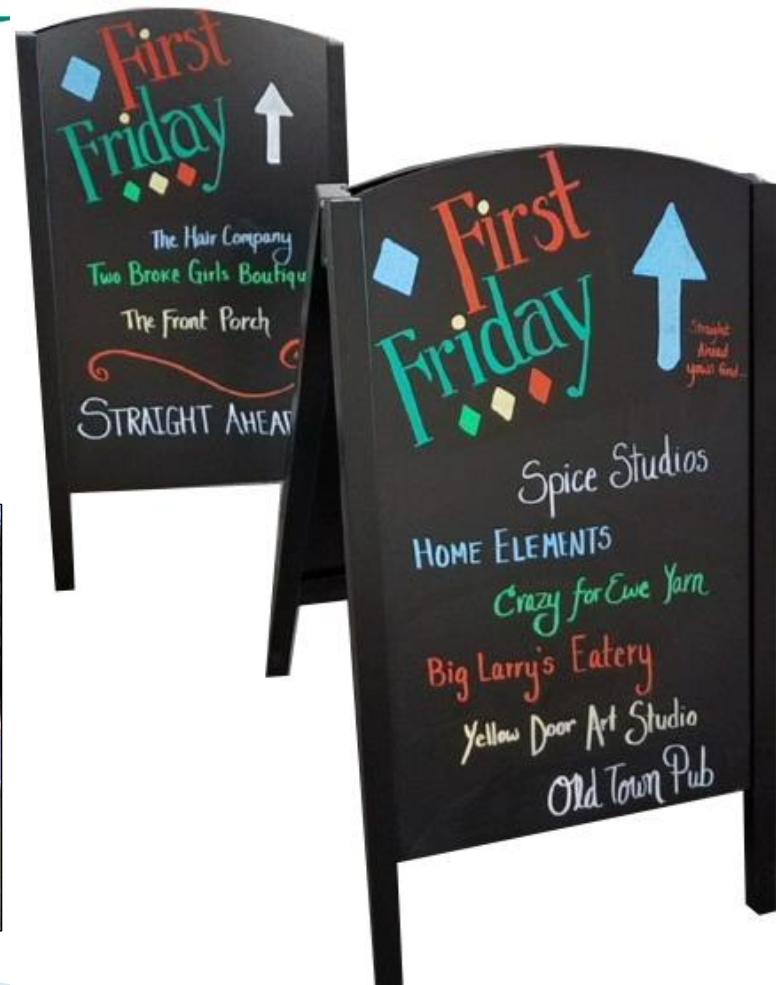 First
Friday
The Hair Company
Two Broke Girls Boutiqu
The Front Porch
STRAIGHT AHEAD
First
Friday
Straight
Ahead
you'll find...
Spice Studios
HOME ELEMENTS
Crazy for Ewe Yarn
Big Larry's Eatery
Yellow Door Art Studio
Old Town Pub